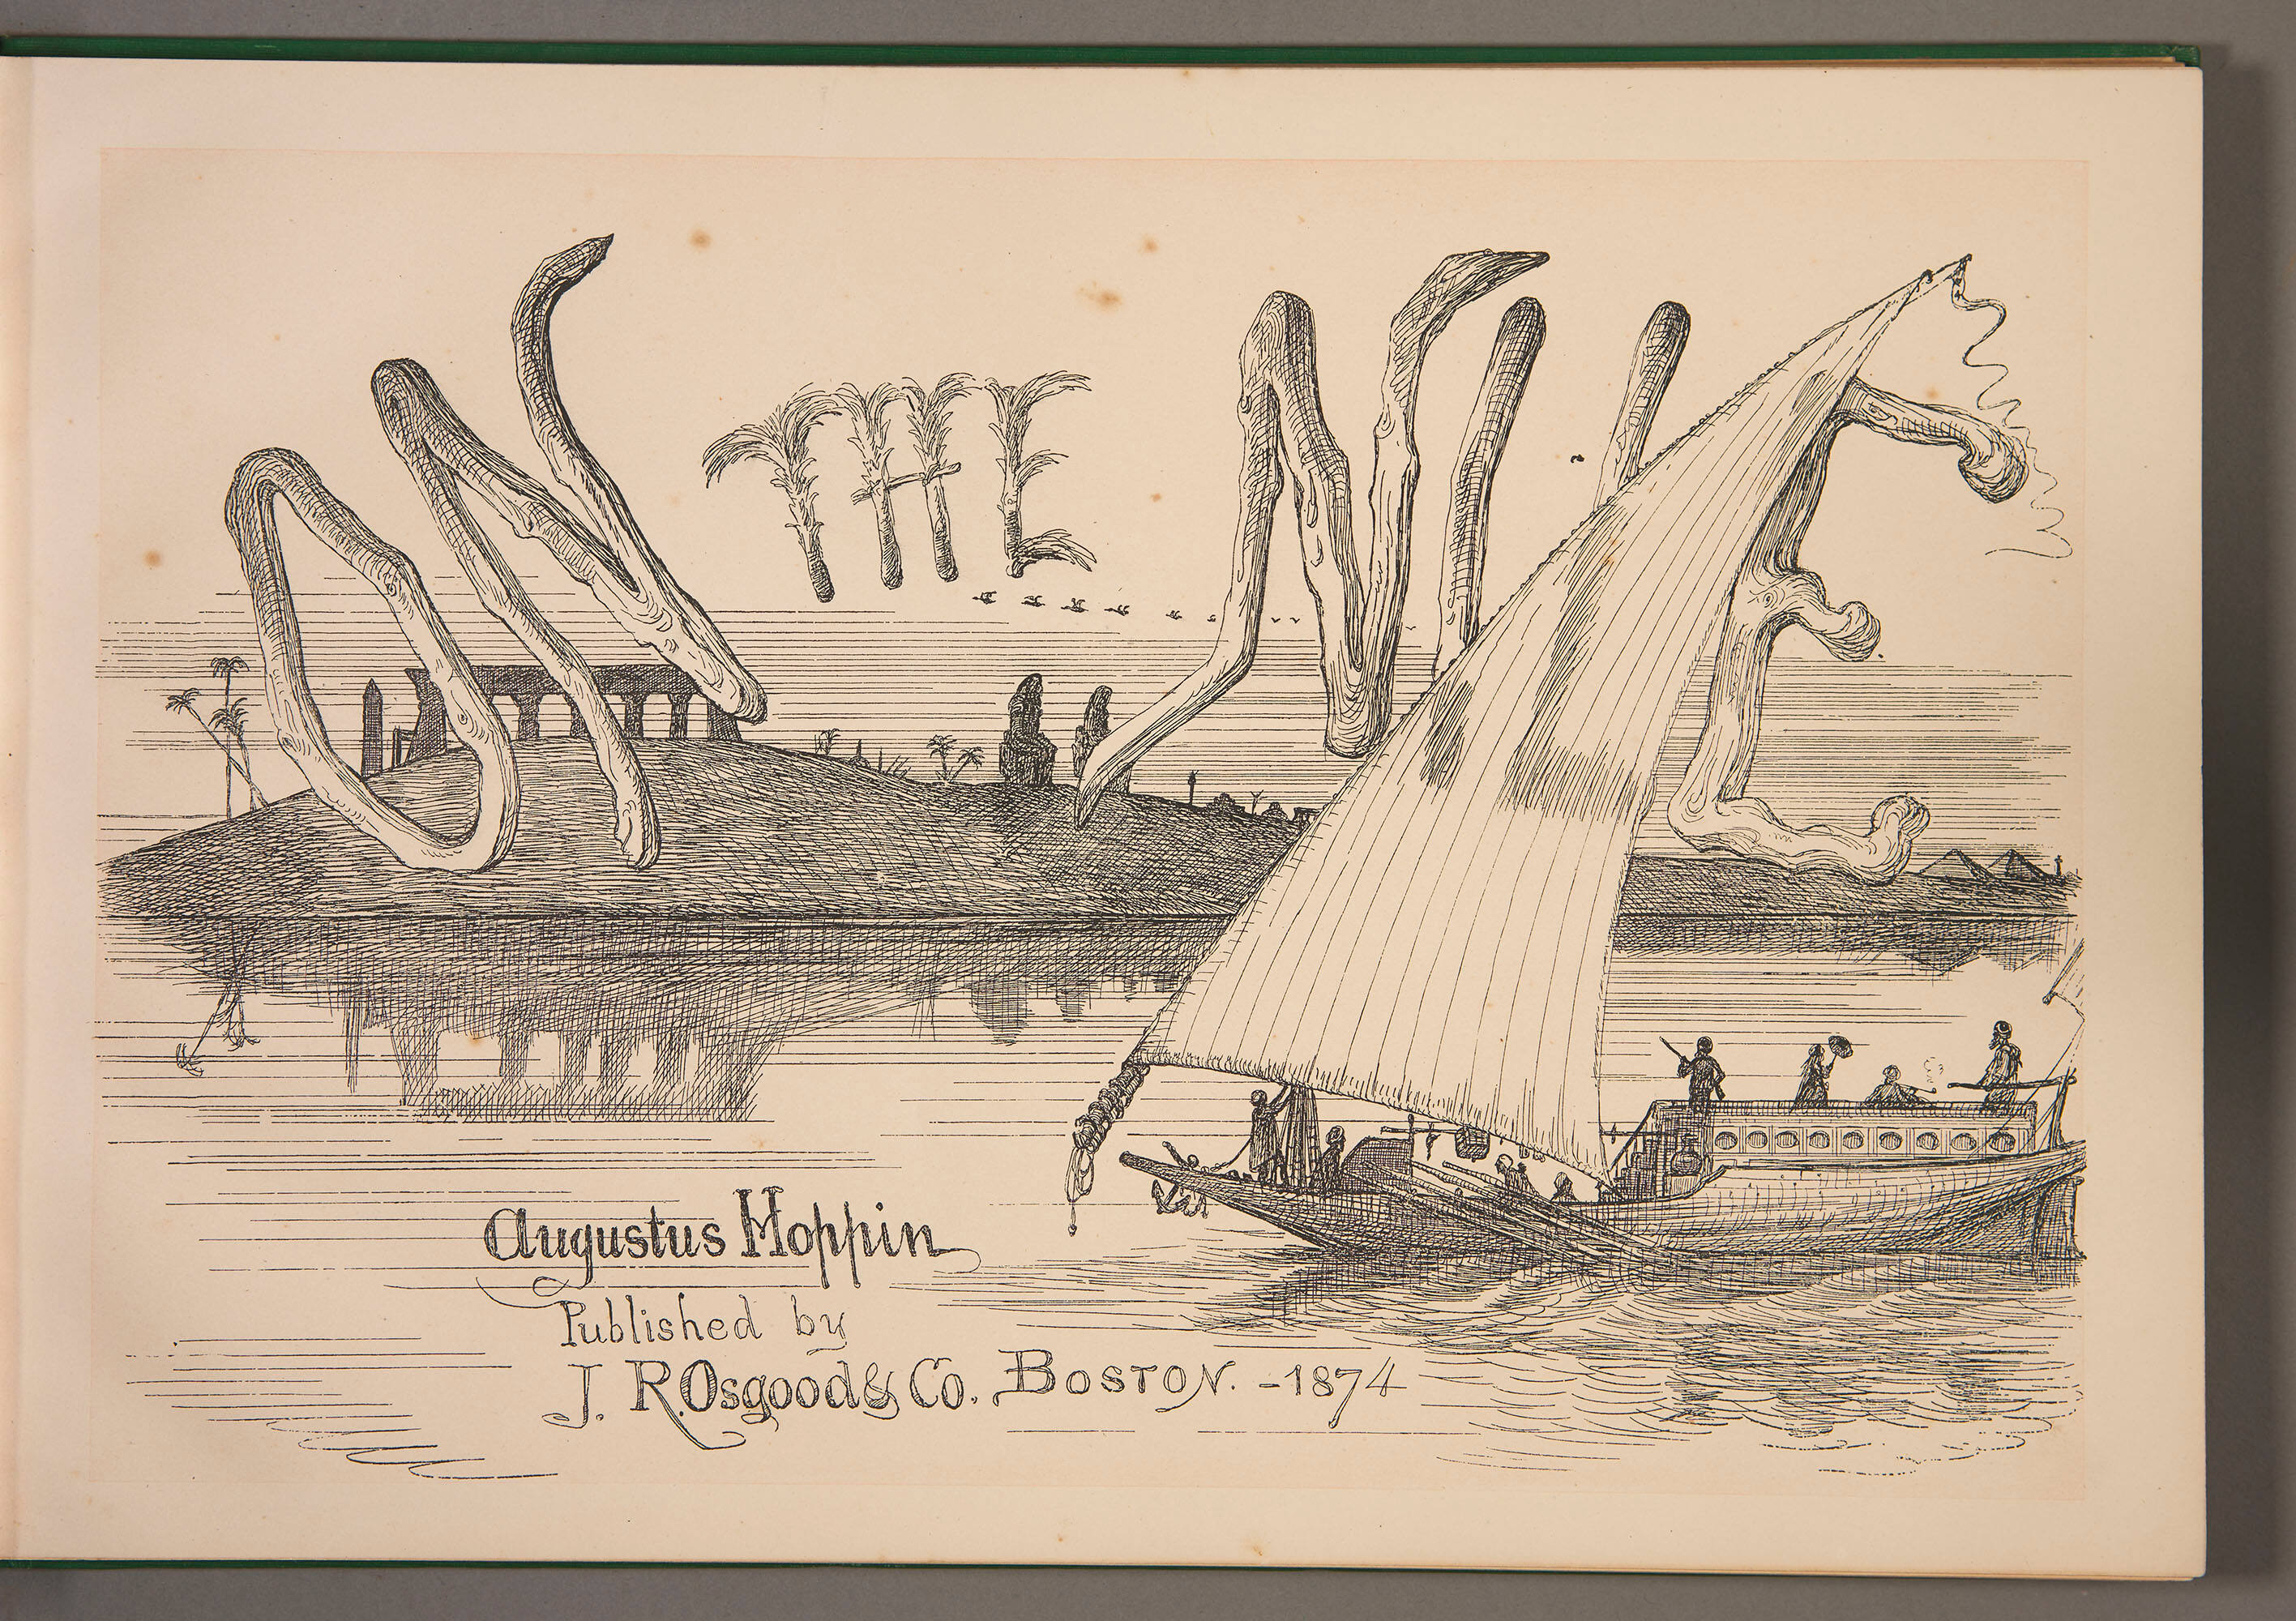 ON THE NILE
Augustus Hoppin
Published by
J. R. Osgood & Co. Boston. - 1874